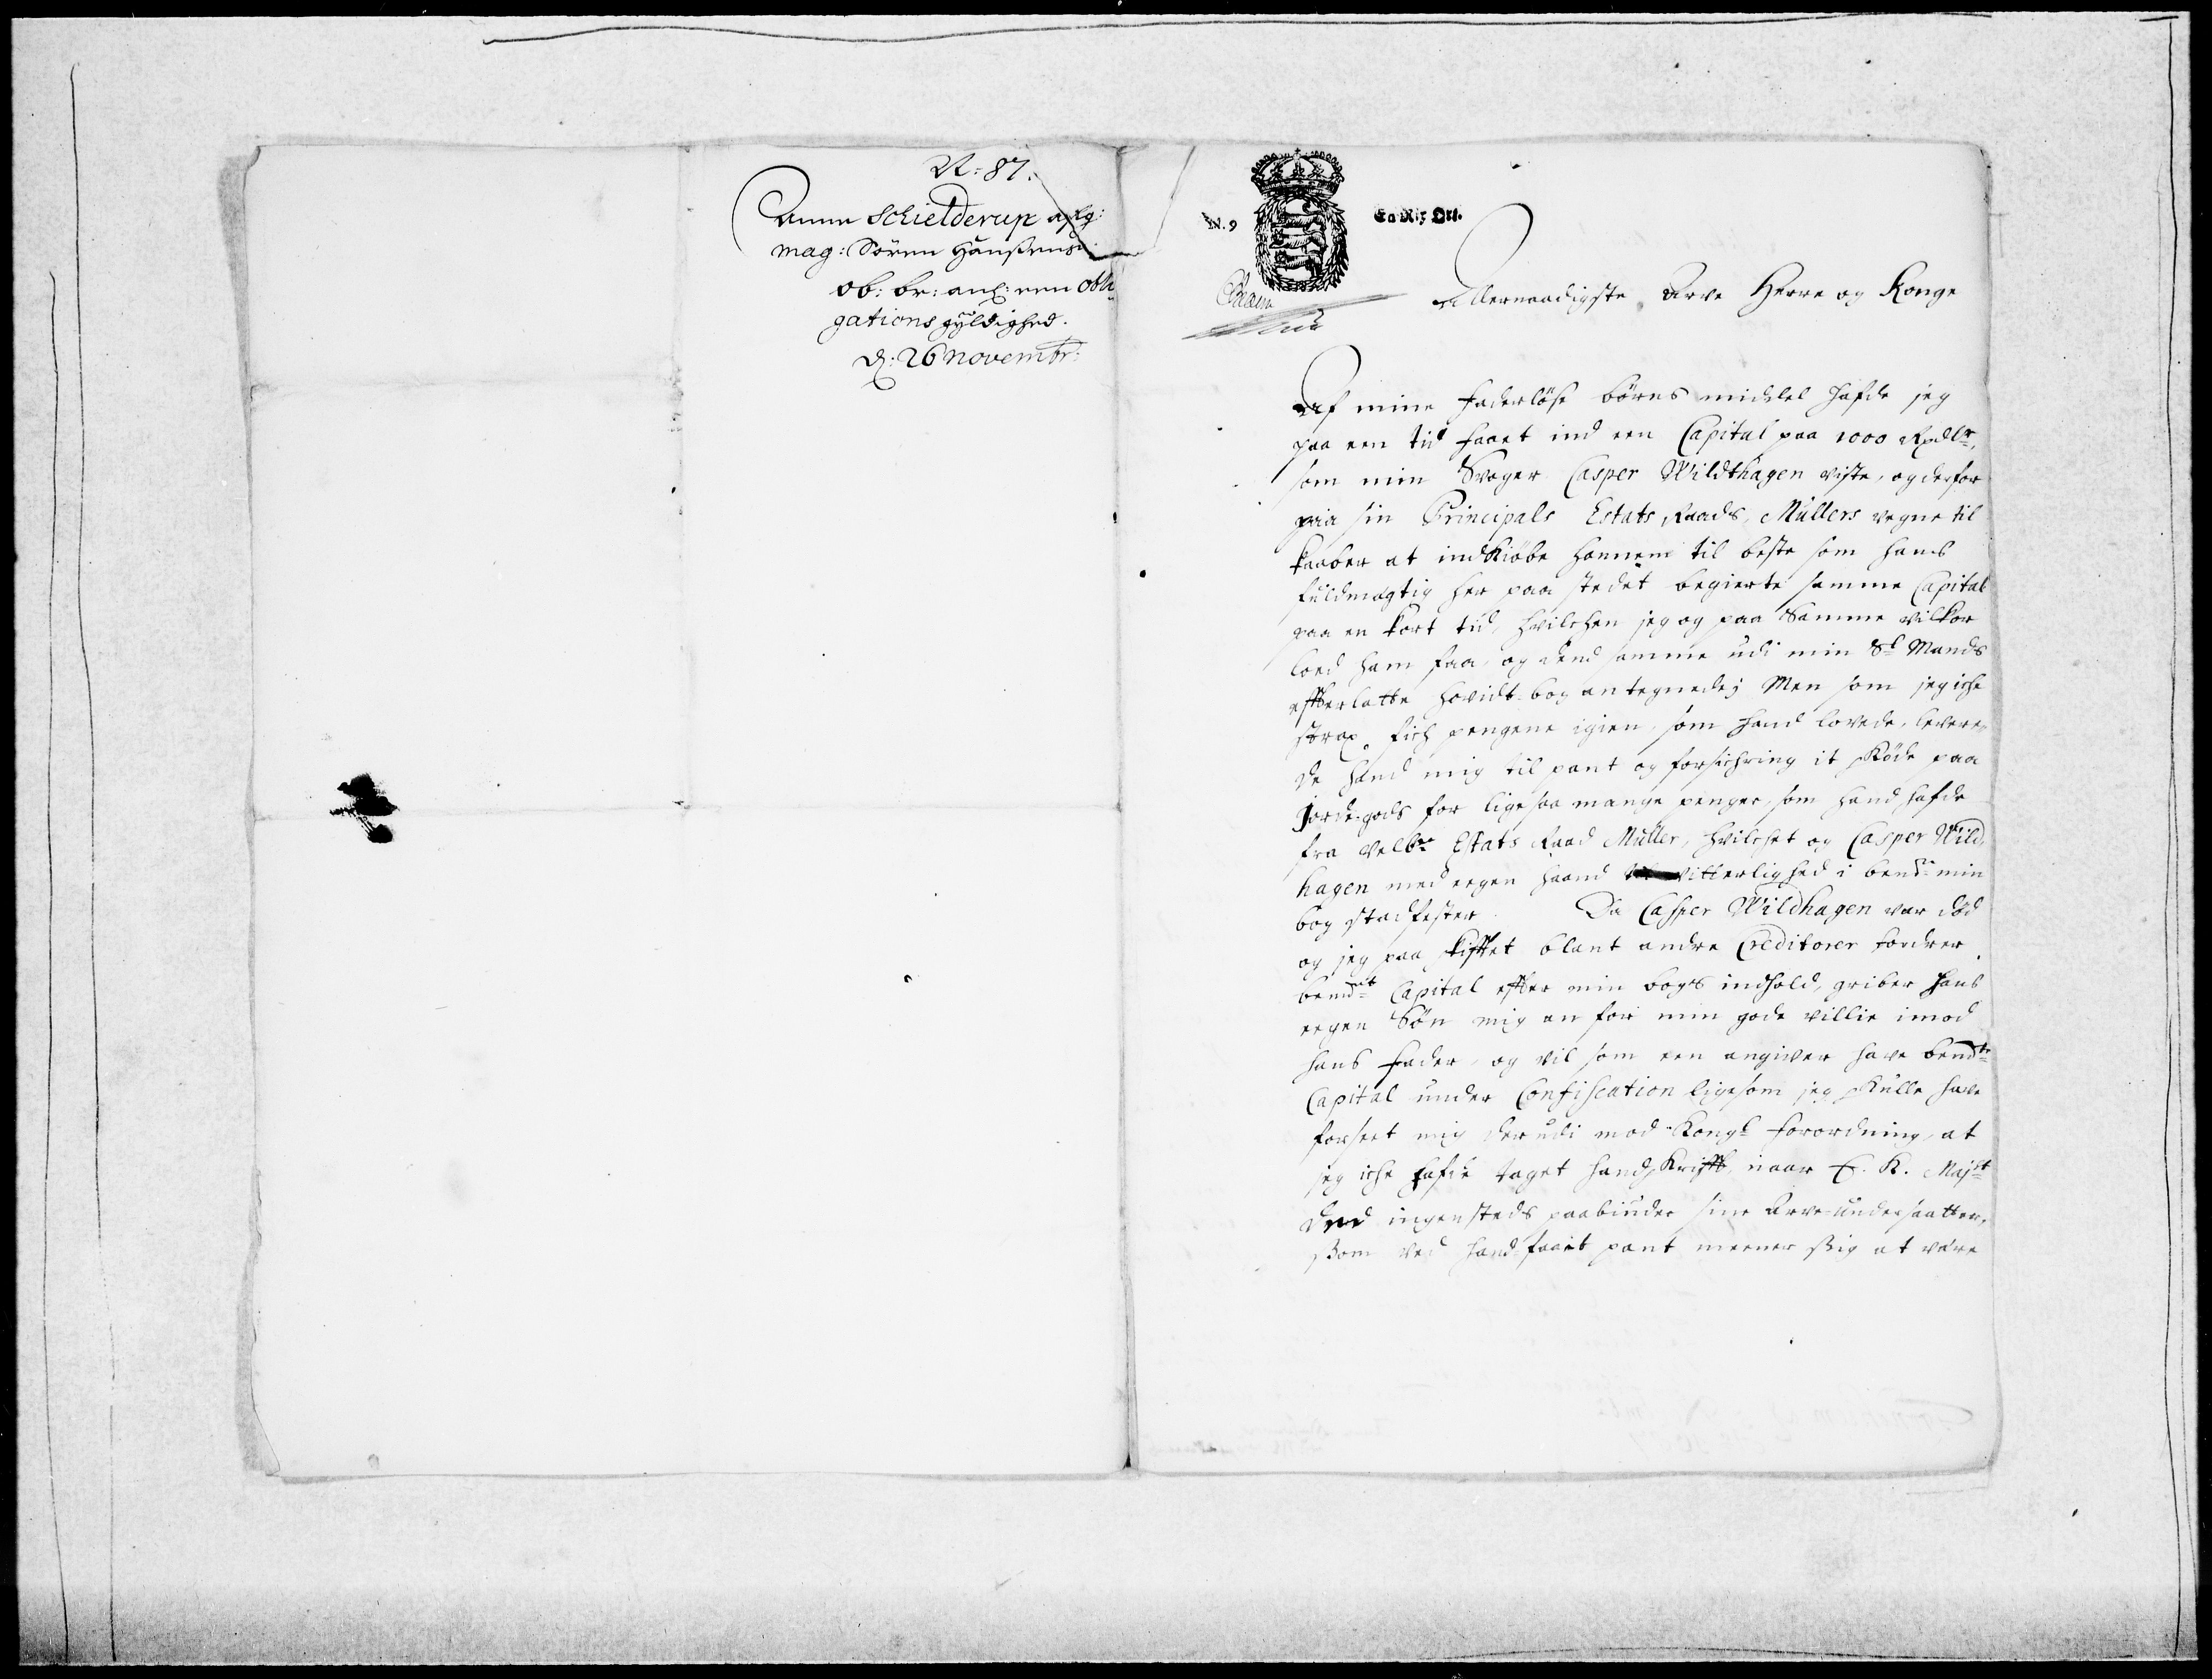 N: 87.
Anna Schielderup afg:
mag: Sören Hansens
ob: br: anl: een obli
gations gyldighed.
d: 26 Novembr:
N. 9
En Rix Ort.
Allernaadigste Arve Herre og Konge
Af mine faderløse børns middel hafde jeg
paa een tid faaet ind een Capital paa 1000 Rixdlr,
som min Svoger Casper Wildthagen viste, og derfor
paa sin Principals Estats Raads Müllers vegne til
kaaber at indkiöbe hannem til beste som hans
fuldmægtig her paa stedet begierte samme Capital
paa en kort tid, hvilchen jeg og paa Samme vilkor
loed ham faa, og dend samme udi min Sl Mands
effterlatte hovidt-bog antegnede; Men som jeg iche
strax fich pengene igien, som hand lovede, levere,,
de hand mig til pant og forsichring it skiöde paa
Jorde-gods for ligesaa mange penger, som hand hafde
fra velbr Estats Raad Müller, hvilchet og Casper Wild,
hagen med eegen haand vitterlighed i bemdte min
bog stadfester. Da Casper Wildhagen var död
og jeg paa skifftet blant andre Creditorer fordrer
bemdte Capital effter min bogs indhold, griber hans
eegen Søn mig an for min gode villie imod
hans fader, og vil som een angiver have bemdte
Capital under Confiscation ligesom jeg skulle have
forseet mig derudi mod Kongl forordning, at
jeg iche hafde taget handskrifft, naar E. K. Majst
dend ingensteds paabinder sine Arve-undersaatter,
som ved hand-faait pant meener sig at være